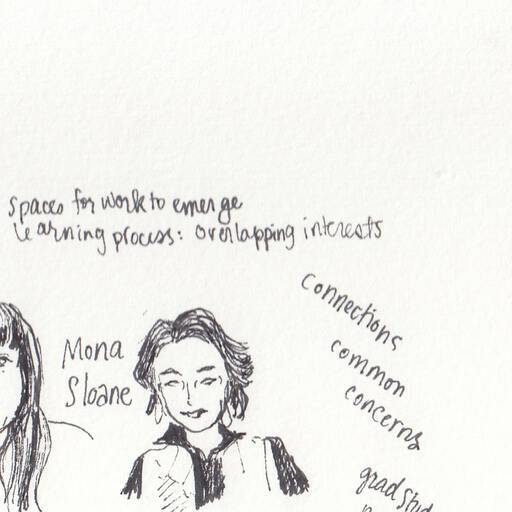 spaces for work to emerge
learning process: overlapping interests
connections
common
concerns
Mona
Sloane
grad